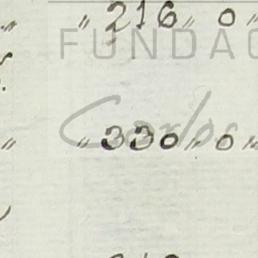 " 216 " 0 "
FUNDAC
Carlos
" 330 " 0 "